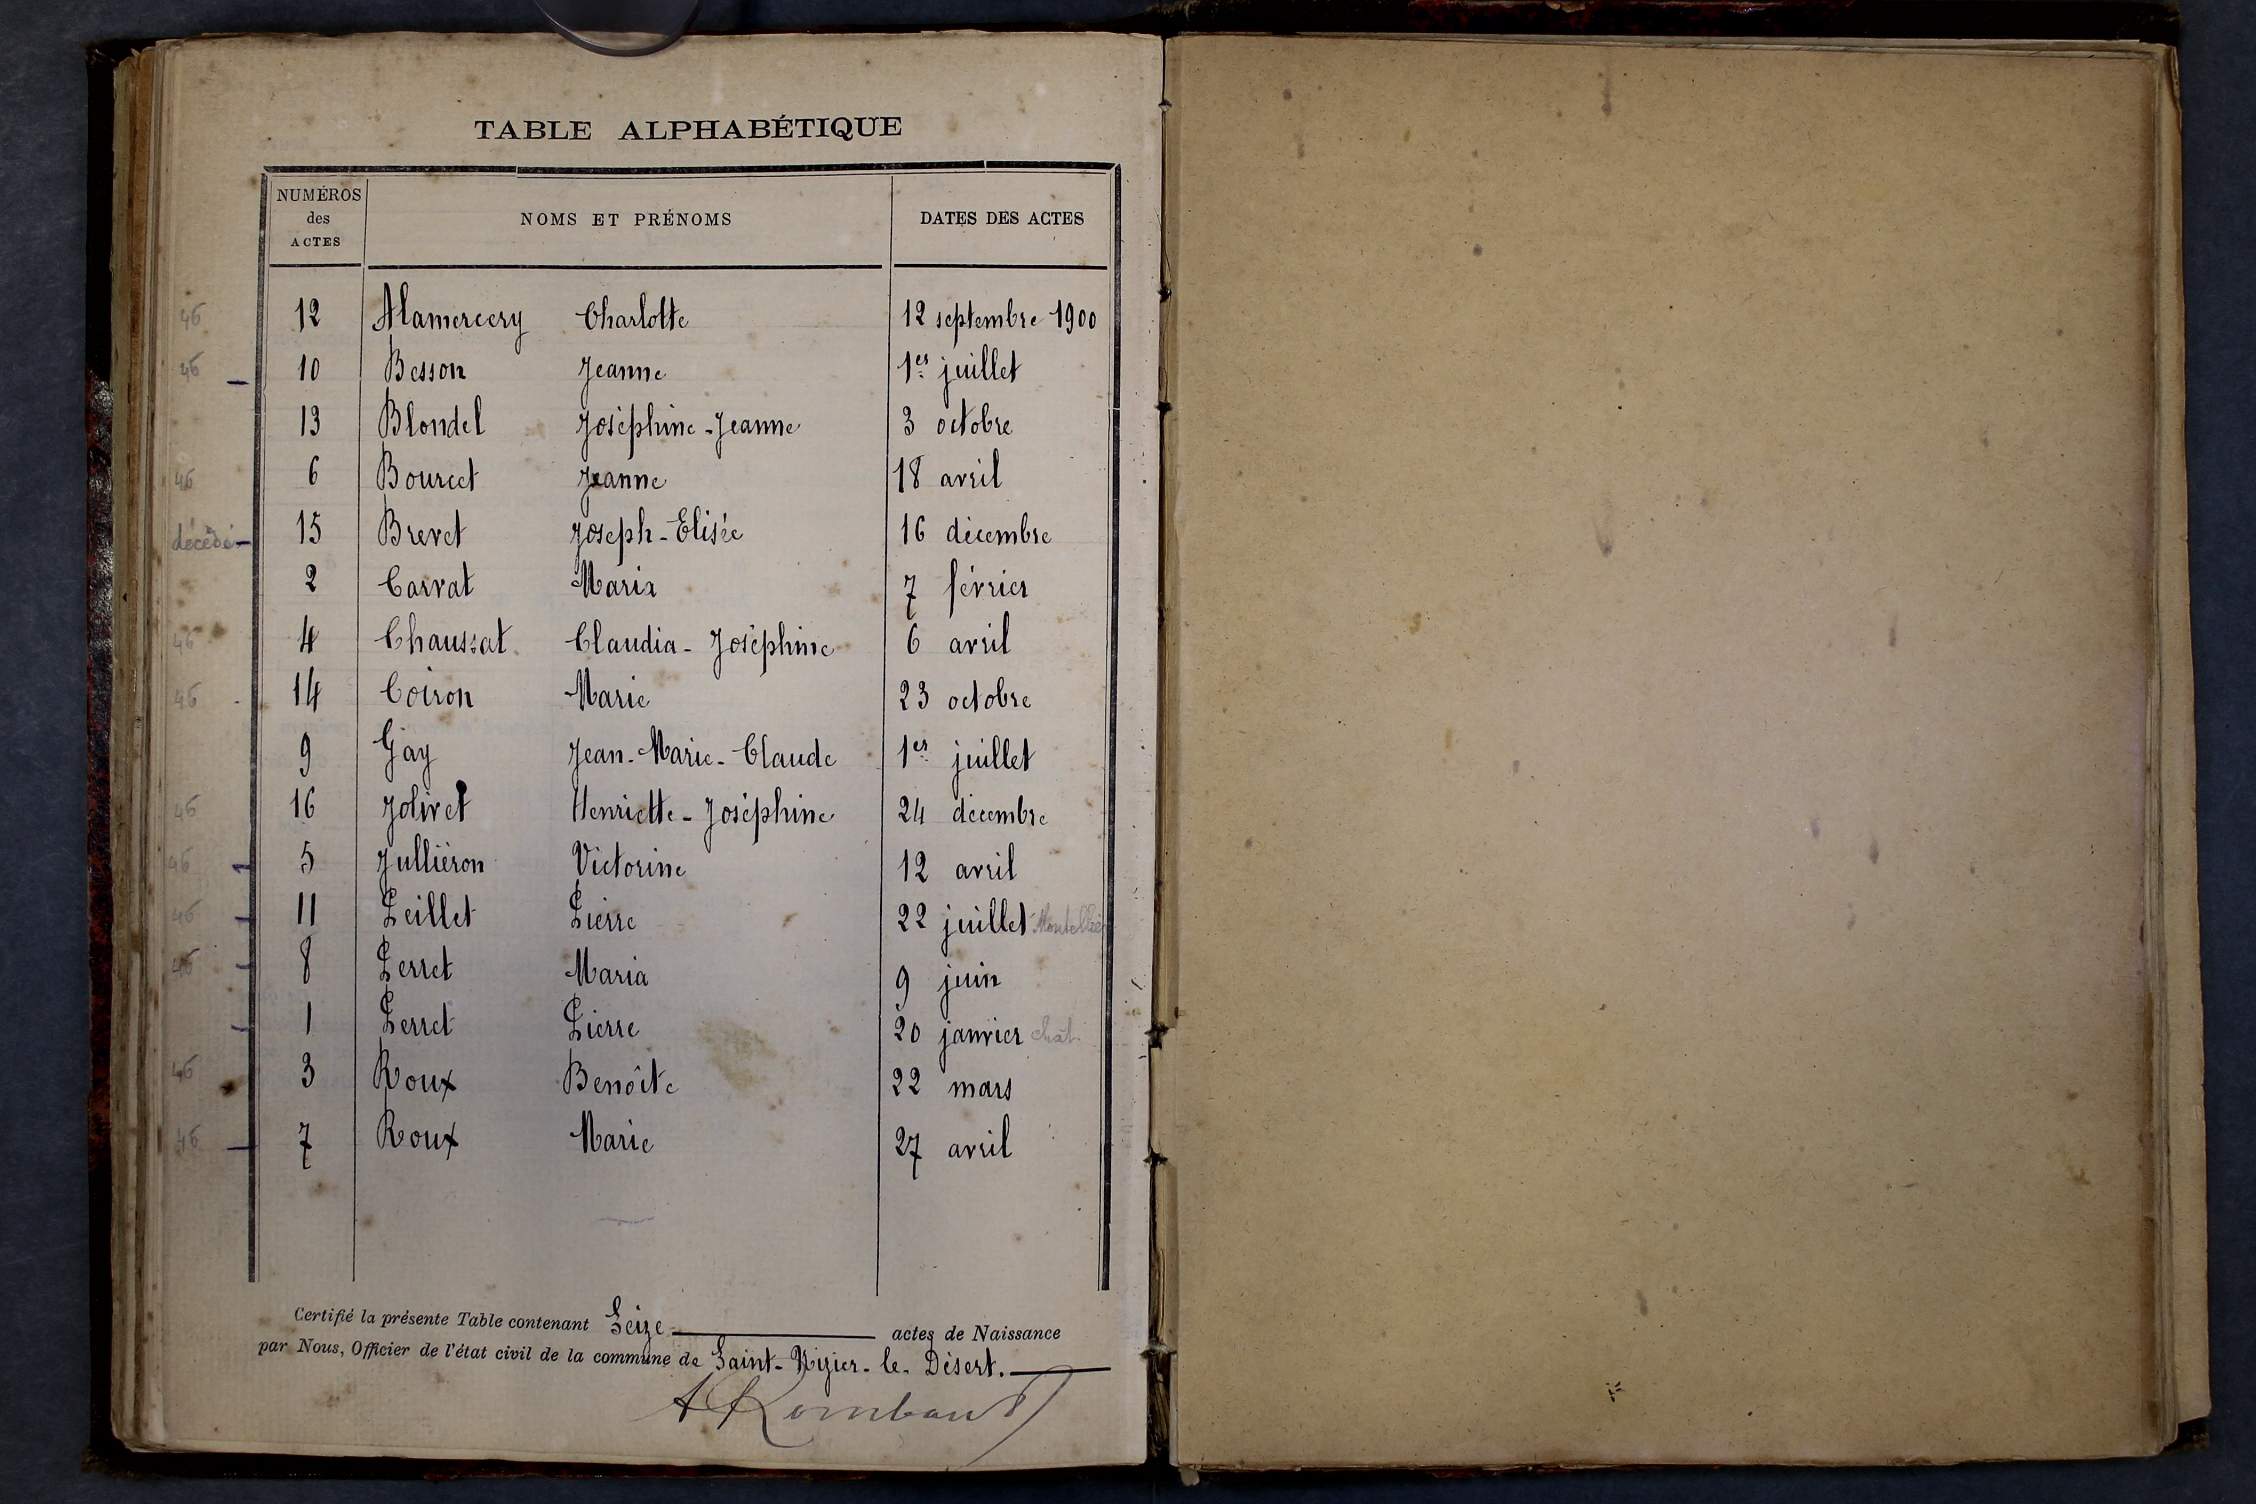 TABLE ALPHABÉTIQUE
NUMÉROS des ACTES NOMS ET PRÉNOMS DATES DES ACTES
46 12 Alamercery Charlotte 12 septembre 1900
46 10 Besson Jeanne 1er juillet
13 Blondel Joséphine-Jeanne 3 octobre
46 6 Bourcet Jeanne 18 avril
décédé 15 Brevet Joseph-Elisée 16 décembre
2 Carrat Maria 7 février
46 4 Chaussat Claudia-Joséphine 6 avril
46 14 Coiron Marie 23 octobre
9 Gay Jean-Marie-Claude 1er juillet
46 16 Jolivet Henriette-Joséphine 24 décembre
46 5 Julliéron Victorine 12 avril
46 11 Peillet Pierre 22 juillet
46 8 Perret Maria 9 juin
1 Perret Pierre 20 janvier chat.
46 3 Roux Benoîte 22 mars
46 7 Roux Marie 27 avril
Certifié la présente Table contenant Seize actes de Naissance
par Nous, Officier de l'état civil de la commune de Saint-Nizier-le-Désert.